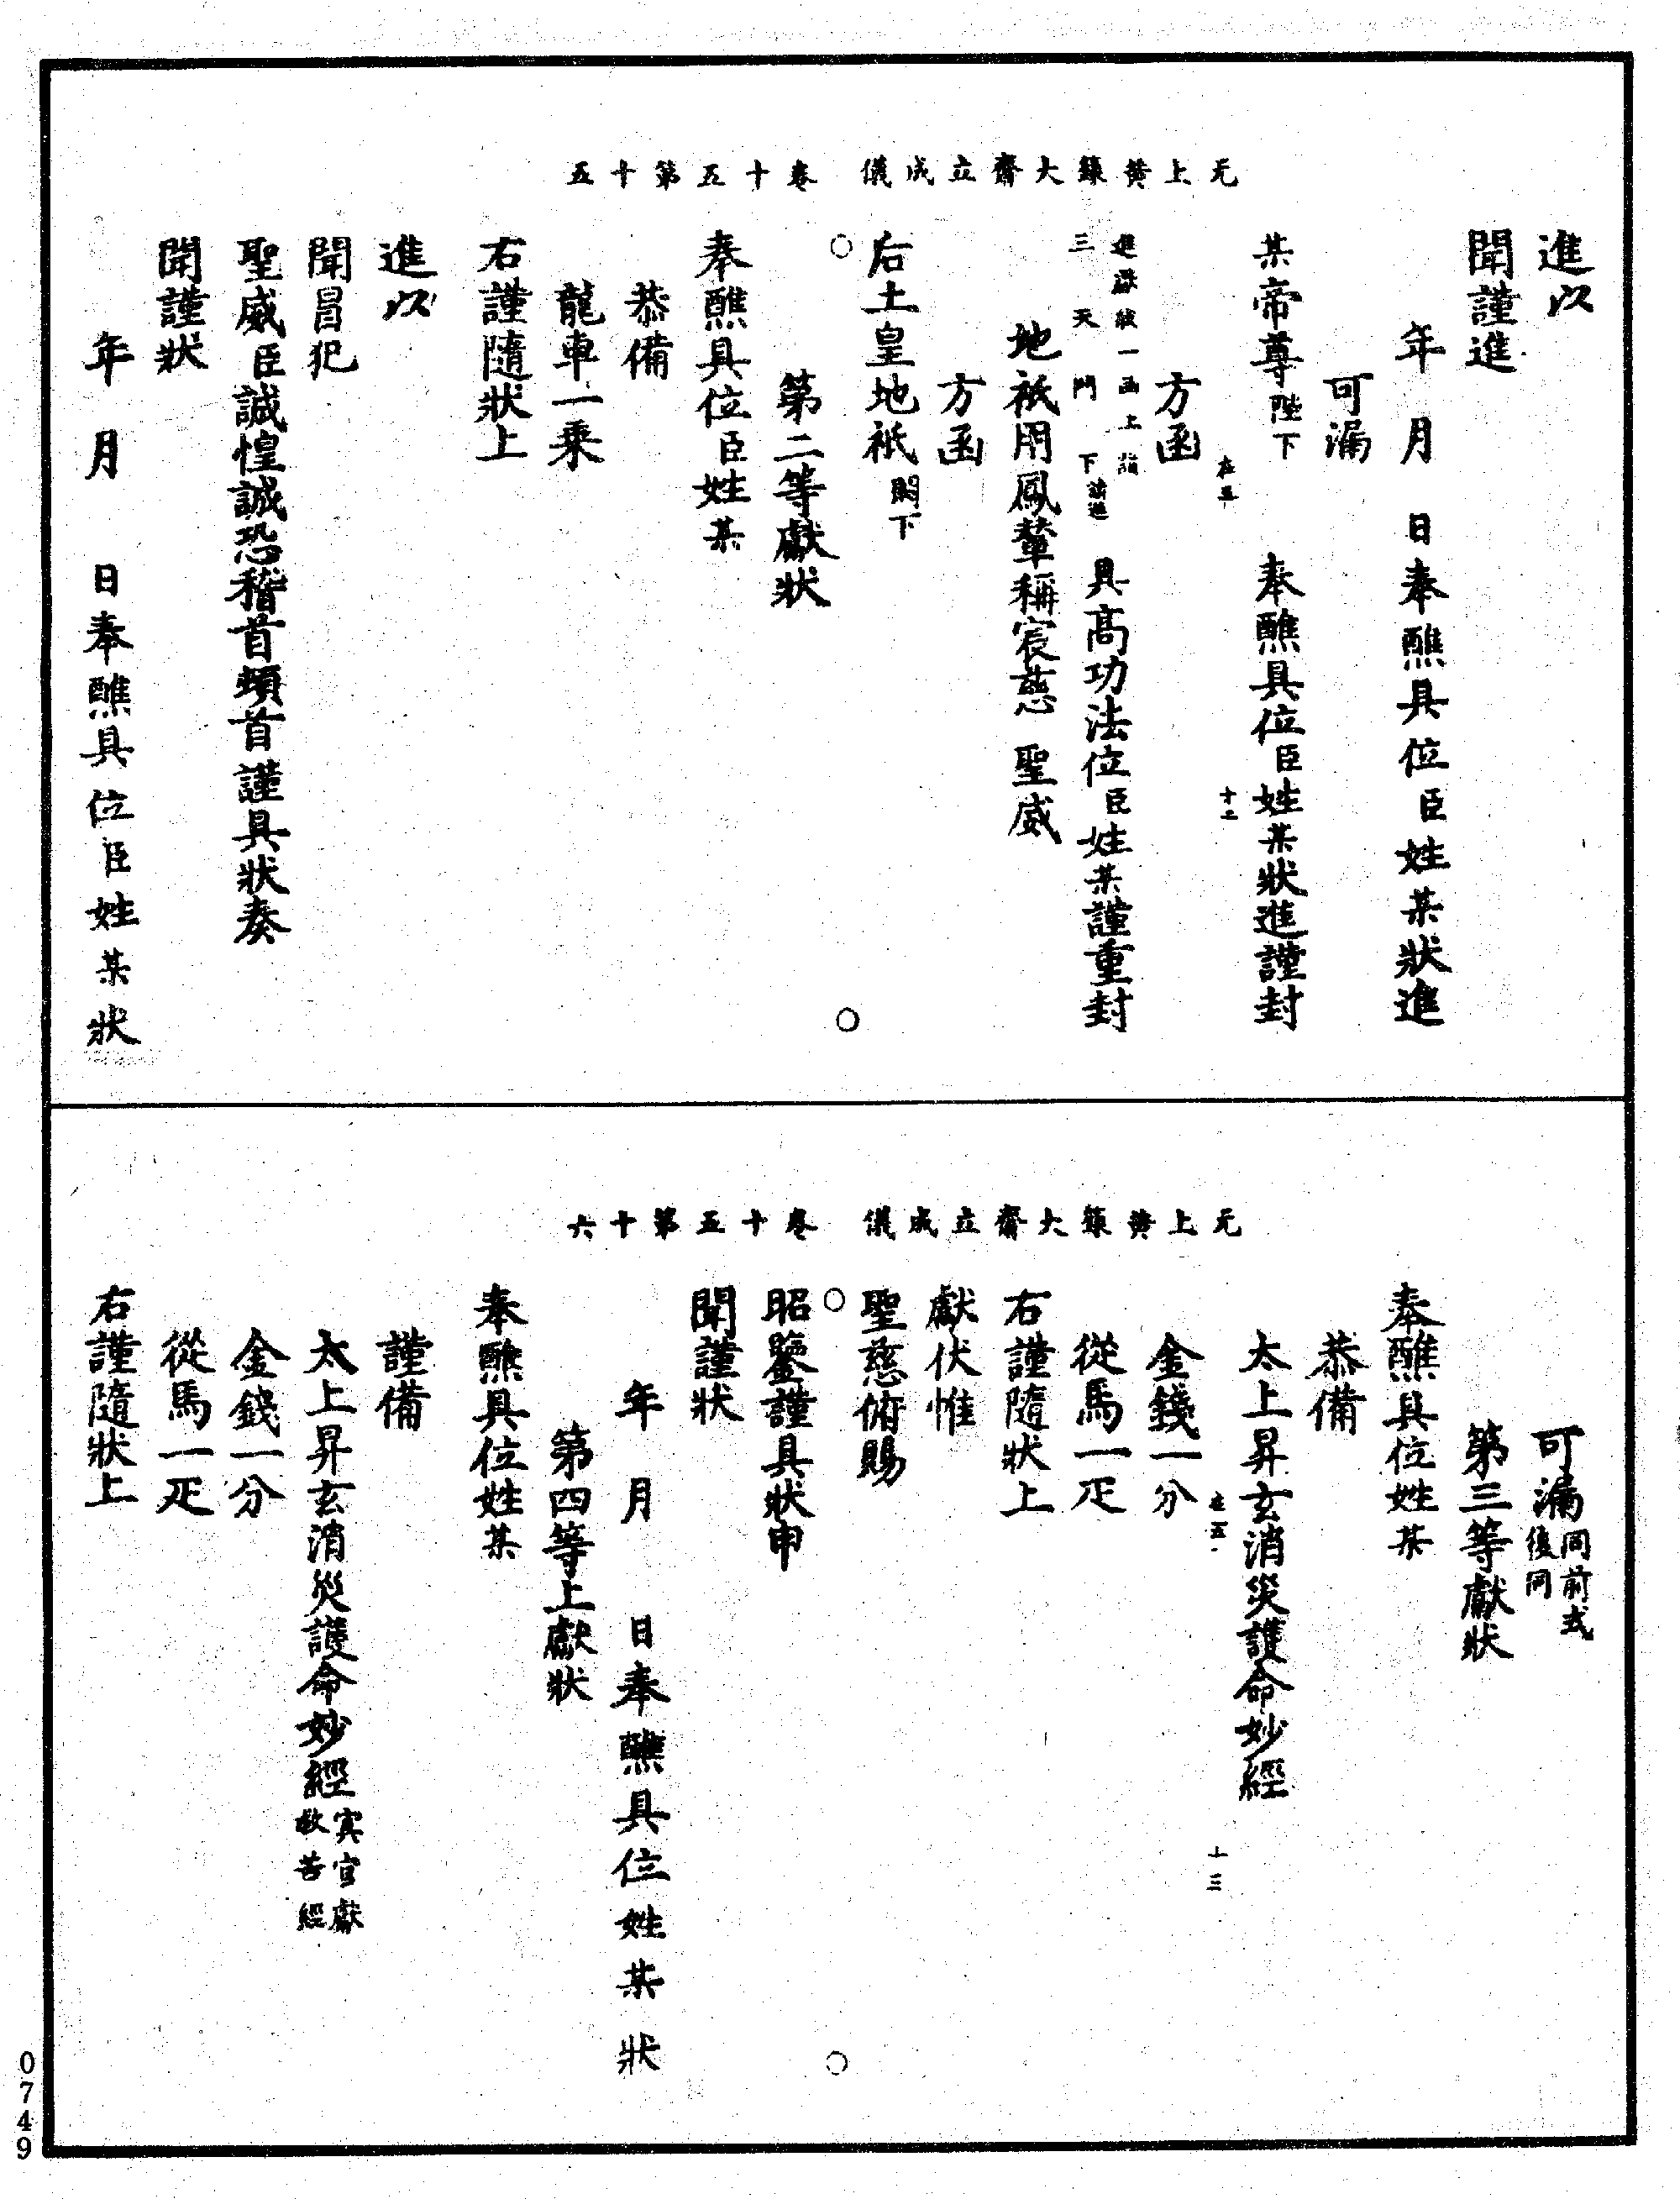 元上黃籙大齋立成儀　卷十五第十五
進以
聞謹進
年　月　日奉醮具位臣姓某狀進
可漏
某帝尊陛下　奉醮具位臣姓某狀進謹封
十二
方函
進獻狀一函上詣
三天門下請進　具高功法位臣姓某謹重封
地祇用鳳輦稱宸慈　聖威
方函
后土皇地祇闕下
第二等獻狀
奉醮具位臣姓某
恭備
龍車一乗
右謹隨狀上
進以
聞冒犯
聖威臣誠惶誠恐稽首頓首謹具狀奏
聞謹狀
年　月　日奉醮具位臣姓某狀
元上黃籙大齋立成儀　卷十五第十六
可漏同前式後同
第三等獻狀
奉醮具位姓某
恭備
太上昇玄消災護命妙經
十三
金錢一分
從馬一疋
右謹隨狀上
獻伏惟
聖慈俯賜
昭鑒謹具狀申
聞謹狀
年　月　日奉醮具位姓某狀
第四等上獻狀
奉醮具位姓某
謹備
太上昇玄消災護命妙經冥官獻救苦經
金錢一分
從馬一疋
右謹隨狀上
0749